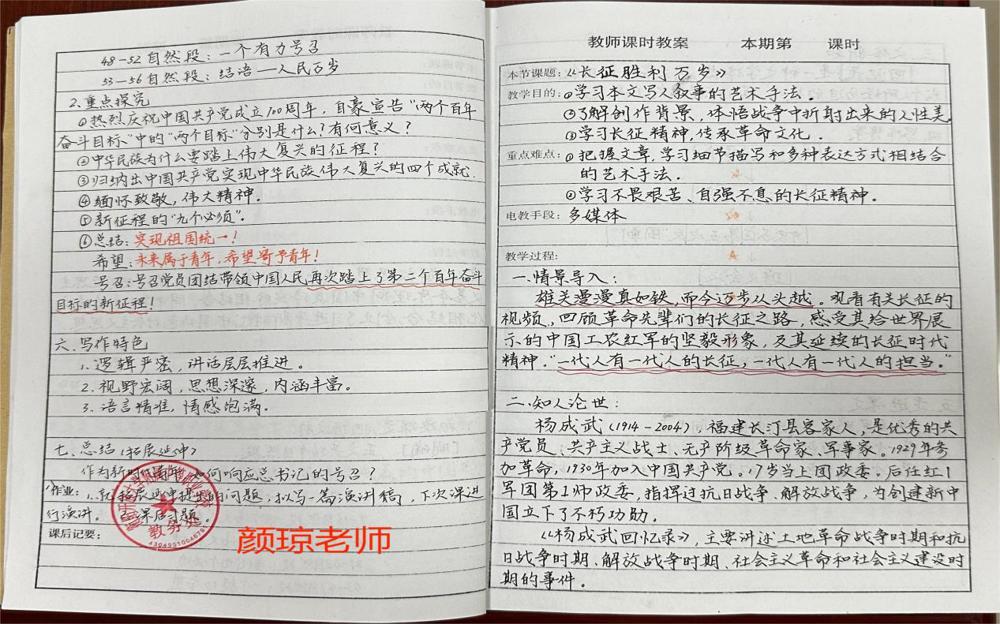 48-52自然段:一个有力号召
53-56自然段:结语—人民万岁
2.重点探究
①热烈庆祝中国共产党成立100周年,自豪宣告"两个百年
奋斗目标"中的"两个目标"分别是什么?有何意义?
②中华民族为什么要踏上伟大复兴的征程?
③归纳出中国共产党实现中华民族伟大复兴的四个成就.
④缅怀致敬,伟大精神.
⑤新征程的"九个必须".
⑥总结:实现祖国统一!
希望:未来属于青年,希望寄予青年!
号召:号召党员团结带领中国人民再次踏上了第二个百年奋斗
目标的新征程!
六.写作特色
1.逻辑严密,讲话层层推进.
2.视野宏阔,思想深邃,内涵丰富。
3.语言精准,情感饱满。
七.总结(拓展延伸)
作为新时代青年,如何响应总书记的号召?
作业:1.提出的问题,拟写一篇演讲稿,下次课进
行演讲。2.课后习题。
教务处
课后记要:
颜琼老师
教师课时教案 本期第 课时
本节课题:《长征胜利万岁》
教学目的:①学习本文写人叙事的艺术手法.
②了解创作背景、体悟战争中折射出来的人性美
③学习长征精神,传承革命文化.
重点难点:①把握文章,学习细节描写和多种表达方式相结合
的艺术手法.
②学习不畏艰苦、自强不息的长征精神.
电教手段:多媒体
教学过程:
一.情景导入:
雄关漫漫真如铁,而今迈步从头越。观看有关长征的
视频,回顾革命先辈们的长征之路,感受其给世界展
示的中国工农红军的坚毅形象,及其延续的长征时代
精神."一代人有一代人的长征,一代人有一代人的担当."
二.知人论世:
杨成武(1914-2004),福建长汀县客家人,是优秀的共
产党员、共产主义战士、无产阶级革命家、军事家。1929年参
加革命,1930年加入中国共产党。17岁当上团政委,后任红1
军团第1师政委,指挥过抗日战争、解放战争,为创建新中
国立下了不朽功勋.
《杨成武回忆录》,主要讲述土地革命战争时期和抗
日战争时期、解放战争时期、社会主义革命和社会主义建设时
期的事件。